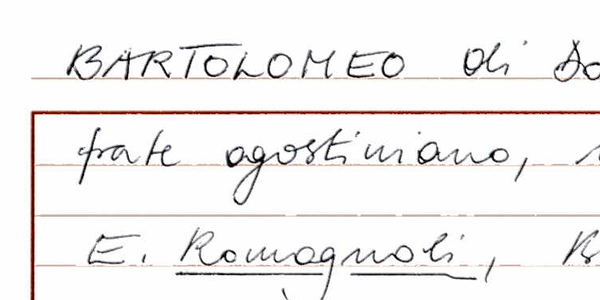 BARTOLOMEO di
frate agostiniano,
E. Romagnoli,